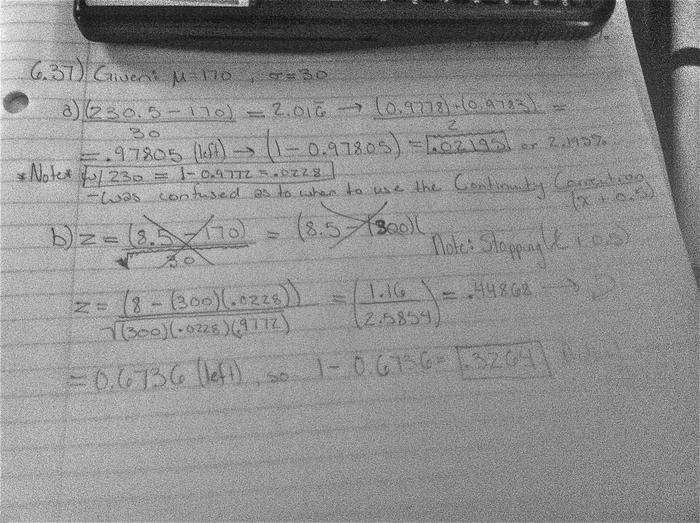 6.37) Given: μ=170, σ=30
a) (230.5-170)/30 = 2.016̄ → (0.9778)+(0.9783)/2 =
= .97805 (left) → (1-0.97805) = .02195 or 2.195%
*Note* w/ 230 = 1-0.9772 = .0228
- was confused as to when to use the Continuity Correction (x+0.5)
b) z = (8.5-170)/√30 = (8.5-(300)( Note: Stopping (x+0.5)
z = (8-(300)(.0228))/√(300)(.0228)(.9772) = (1.16/2.5854) = .44868 →
= 0.6736 (left), so 1-0.6736 = .3264